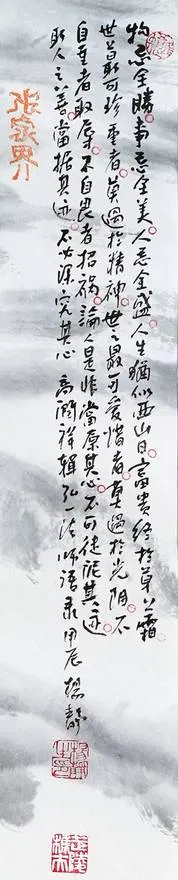 物忌全勝事忌全美人忌全盛人生猶似西山日富貴終於草上霜
世最可珍重者莫過於精神世之最可愛惜者莫過於光阴不
自重者取辱不自畏者招祸論人是非當原其心不可徒泥其迹
取人之善當据其迹不必深究其心 高顯祥輯弘一法师語录甲辰 楊靜